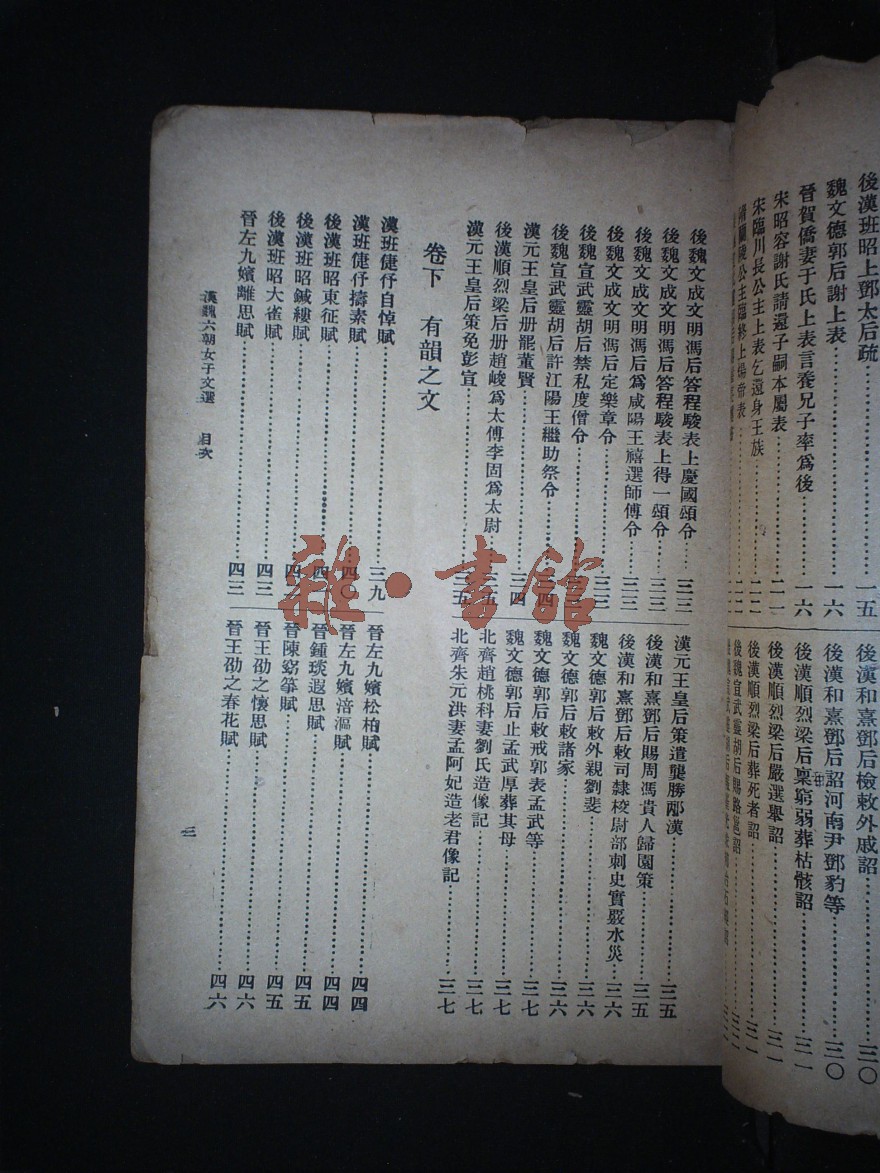 後漢班昭上鄧太后疏……一五
魏文德郭后謝上表……一六
晉賀僑妻于氏上表言養兄子率為後……一六
宋昭容謝氏請還子嗣本屬表……二一
宋臨川長公主上表乞還身王族……二二
隋蘭陵公主臨終上煬帝表……二二
後漢和熹鄧后檢敕外戚詔……三〇
後漢和熹鄧后詔河南尹鄧豹等……三〇
後漢順烈梁后稟窮弱葬枯骸詔……三一
後漢順烈梁后嚴選舉詔……三一
後漢順烈梁后葬死者詔……三一
後魏宣武靈胡后賜路邕詔
後魏文成文明馮后答程駿表上慶國頌令……三三
後魏文成文明馮后答程駿表上得一頌令……三三
後魏文成文明馮后為咸陽王禧選師傅令……三三
後魏文成文明馮后定樂章令……三三
後魏宣武靈胡后禁私度僧令
後魏宣武靈胡后許江陽王繼助祭令……四
漢元王皇后册罷董賢……三四
後漢順烈梁后册趙峻為太傅李固為太尉……五
漢元王皇后策免彭宣……三五
漢元王皇后策遣龔勝邴漢……三五
後漢和熹鄧后賜周馮貴人歸園策……三五
後漢和熹鄧后敕司隸校尉部刺史實覈水災……三六
魏文德郭后敕外親劉斐……三六
魏文德郭后敕諸家……三六
魏文德郭后敕戒郭表孟武等……三七
魏文德郭后止孟武厚葬其母……三七
北齊趙桃科妻劉氏造像記……三七
北齊朱元洪妻孟阿妃造老君像記……三七
卷下 有韻之文
漢班倢伃自悼賦……三九
漢班倢伃擣素賦……四〇
後漢班昭東征賦……四
後漢班昭鍼縷賦……四
後漢班昭大雀賦……四三
晉左九嬪離思賦……四三
晉左九嬪松柏賦……四四
晉左九嬪涪漚賦……四四
晉鍾琰遐思賦……四四
晉陳窈箏賦……四五
晉王劭之懷思賦……四五
晉王劭之春花賦……四六
漢魏六朝女子文選 目次
三
雜·書館